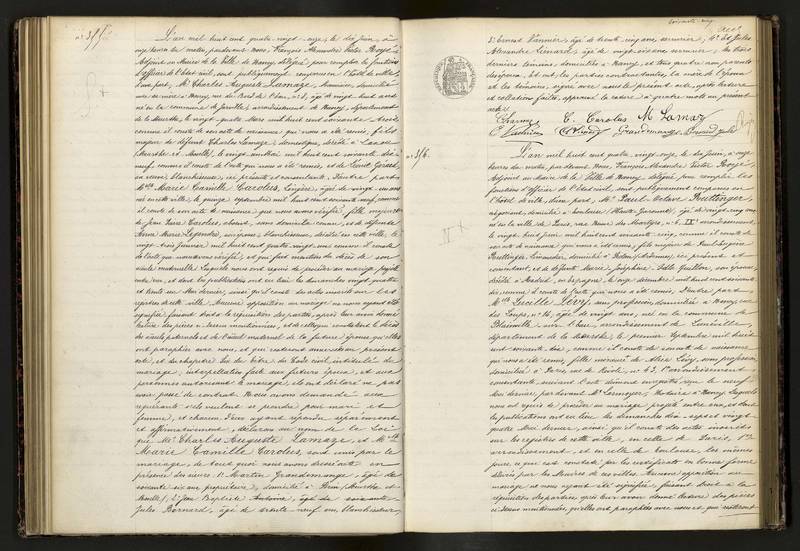 n° 315
L'an mil huit cent quatre vingt onze, le dix Juin, à
onze heures du matin, pardevant nous, François Alexandre Victor
Adjoint au Maire de la Ville de Nancy, délégué pour remplir les fonctions
d'officier de l'état civil, sont publiquement comparus en l'hôtel de ville,
d'une part, Mr Charles Auguste Lamaze, domicilié
né en la commune de arrondissement de Nancy, département
de la Meurthe, le vingt quatre Mars mil huit cent soixante trois
comme il conste de son acte de naissance qui nous a été remis, fils
majeur de défunt Charles Lamaze, domestique, décédé à
(Meurthe et Moselle), le vingt
neuf, comme il conste de l'acte qui nous a été remis, et de
sa veuve, blanchisseuse, ici présente et consentante. D'autre part
Melle Marie Camille Carolus, lingère, âgée de vingt un ans
née en cette ville, le quinze septembre mil huit cent soixante neuf, comme
il conste de son acte de naissance que nous avons vérifié, fille mineure
de Jean Pierre Carolus, absent, sans domicile connu, et de défunte
Anne Marie Legendre, son épouse, blanchisseuse, décédée en cette ville, le
vingt trois Janvier mil huit cent quatre vingt un comme il conste
de l'acte que nous avons vérifié, et qui fait mention du décès de son
aïeule maternelle. Lesquels nous ont requis de procéder au mariage projeté
entre eux, et dont les publications ont eu lieu les dimanches vingt quatre
et trente un Mai dernier, ainsi qu'il conste des actes inscrits sur les
registres de cette ville. Aucune opposition au mariage ne nous ayant été
signifiée, faisant droit à la réquisition des parties, après leur avoir donné
lecture des pièces ci-dessus mentionnées, et de celles qui constatent le décès
des aïeuls paternels et de l'aïeul maternel de la future épouse, qu'elles
ont paraphées avec nous, et qui resteront annexées au présent
acte, et du chapitre six du titre du Code civil, intitulé du
mariage, interpellation faite aux futurs époux, et aux
personnes autorisant le mariage, ils ont déclaré ne pas
avoir passé de contrat. Nous avons demandé aux
requérants s'ils veulent se prendre pour mari et
femme, et chacun d'eux ayant répondu séparément
et affirmativement, déclarons au nom de la Loi
que Mr Charles Auguste Lamaze, et Melle
Marie Camille Carolus, sont unis par le
mariage, de tout quoi nous avons dressé acte en
présence des sieurs 1° Martin Grandemange, âgé de
soixante six ans, propriétaire, domicilié à (Meurthe et
Moselle), 2° Jean Baptiste Antoine, âgé de soixante
Jules Bernard, âgé de trente neuf ans, blanchisseur,
3° Ernest Vannier, âgé de trente cinq ans, serrurier, 4° et Jules
Alexandre Simard, âgé de vingt six ans, serrurier, les trois
derniers témoins, domiciliés à Nancy, et tous quatre non parents
des époux. Et ont, les parties contractantes, la mère de l'époux
et les témoins, signé avec nous le présent acte, après lecture
et collation faites, approuvé la rature à quatre mots au présent
acte.
C. Carolus
Grandemange
n° 316.
L'an mil huit cent quatre vingt onze, le dix Juin, à onze
heures du matin, par devant nous, François Alexandre Victor
Adjoint au Maire de la Ville de Nancy, délégué pour remplir les
fonctions d'officier de l'état civil, sont publiquement comparus en
l'hôtel de ville, d'une part, Mr Paul Octave Reuttinger,
négociant, domicilié à Toulouse (Haute Garonne), âgé de vingt cinq ans
né en la ville de Paris, IXe arrondissement,
le vingt huit Juin mil huit cent soixante cinq, comme il conste de
son acte de naissance qui nous a été remis, fils majeur de
Reuttinger, domicilié à (Ardennes), ici présent et
consentant, et de défunte Marie Joséphine son épouse,
décédée à Madrid, en Espagne, le onze décembre mil huit cent soixante
comme il conste de l'acte qui nous a été remis. D'autre part
Melle Lucelle Lévy, sans profession, domiciliée à Nancy, rue
des Loups, n° 16, âgée de vingt ans, née en la commune de
Blainville sur l'Eau, arrondissement de Lunéville,
département de la Meurthe, le premier Septembre mil huit
cent soixante dix, comme il conste de son acte de naissance
qui nous a été remis, fille mineure de Alice Lévy, sans profession
domiciliée à Paris, rue de Rivoli, n° 63, 1er arrondissement
consentante suivant l'acte dûment enregistré reçu le neuf
Mai dernier, par devant Me Notaire à Nancy. Lesquels
nous ont requis de procéder au mariage projeté entre eux, et dont
les publications ont eu lieu les dimanches dix sept et vingt
quatre Mai dernier, ainsi qu'il conste des actes inscrits
sur les registres de cette ville, en celle de Paris, 1er
arrondissement, et en celle de Toulouse, les mêmes
jours, ce que est constaté par les certificats en bonne forme
délivrés par les Maires de ces villes. Aucune opposition au
mariage ne nous ayant été signifiée, faisant droit à la
réquisition des parties, après leur avoir donné lecture des pièces
ci-dessus mentionnées, qu'elles ont paraphées avec nous et qui resteront